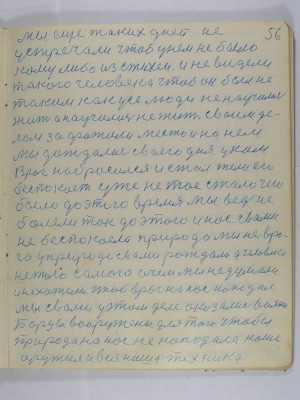 56
мы еще таких днеи не
устречали чтоб унем не было
кому либо из стихеи. и не видели
такого человека чтоб он был не
таким как усе люди не научили
жит а научил их не жит. своим де-
лом за дрожили место и на нем
мы дождалис своего дня у нам
Враг набросился и стал тело его
беспокоит уже не тое стало чем
было до этого время мы вед не
болели так до этого и нас вами
не беспокоело природа мы не вра-
га у природе сами рождали а человека
не того самого о чем мы не думали
и не хотели чтоб враг на нас нападал
мы сами у этом деле оказалис
Борцы вооружены для того чтобы
природа на нас не нападала наше
оружия и вся наша техника